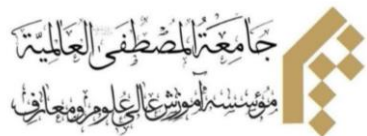 جامعة المصطفی العالمیة
مؤسسه آموزش عالی علوم و معارف